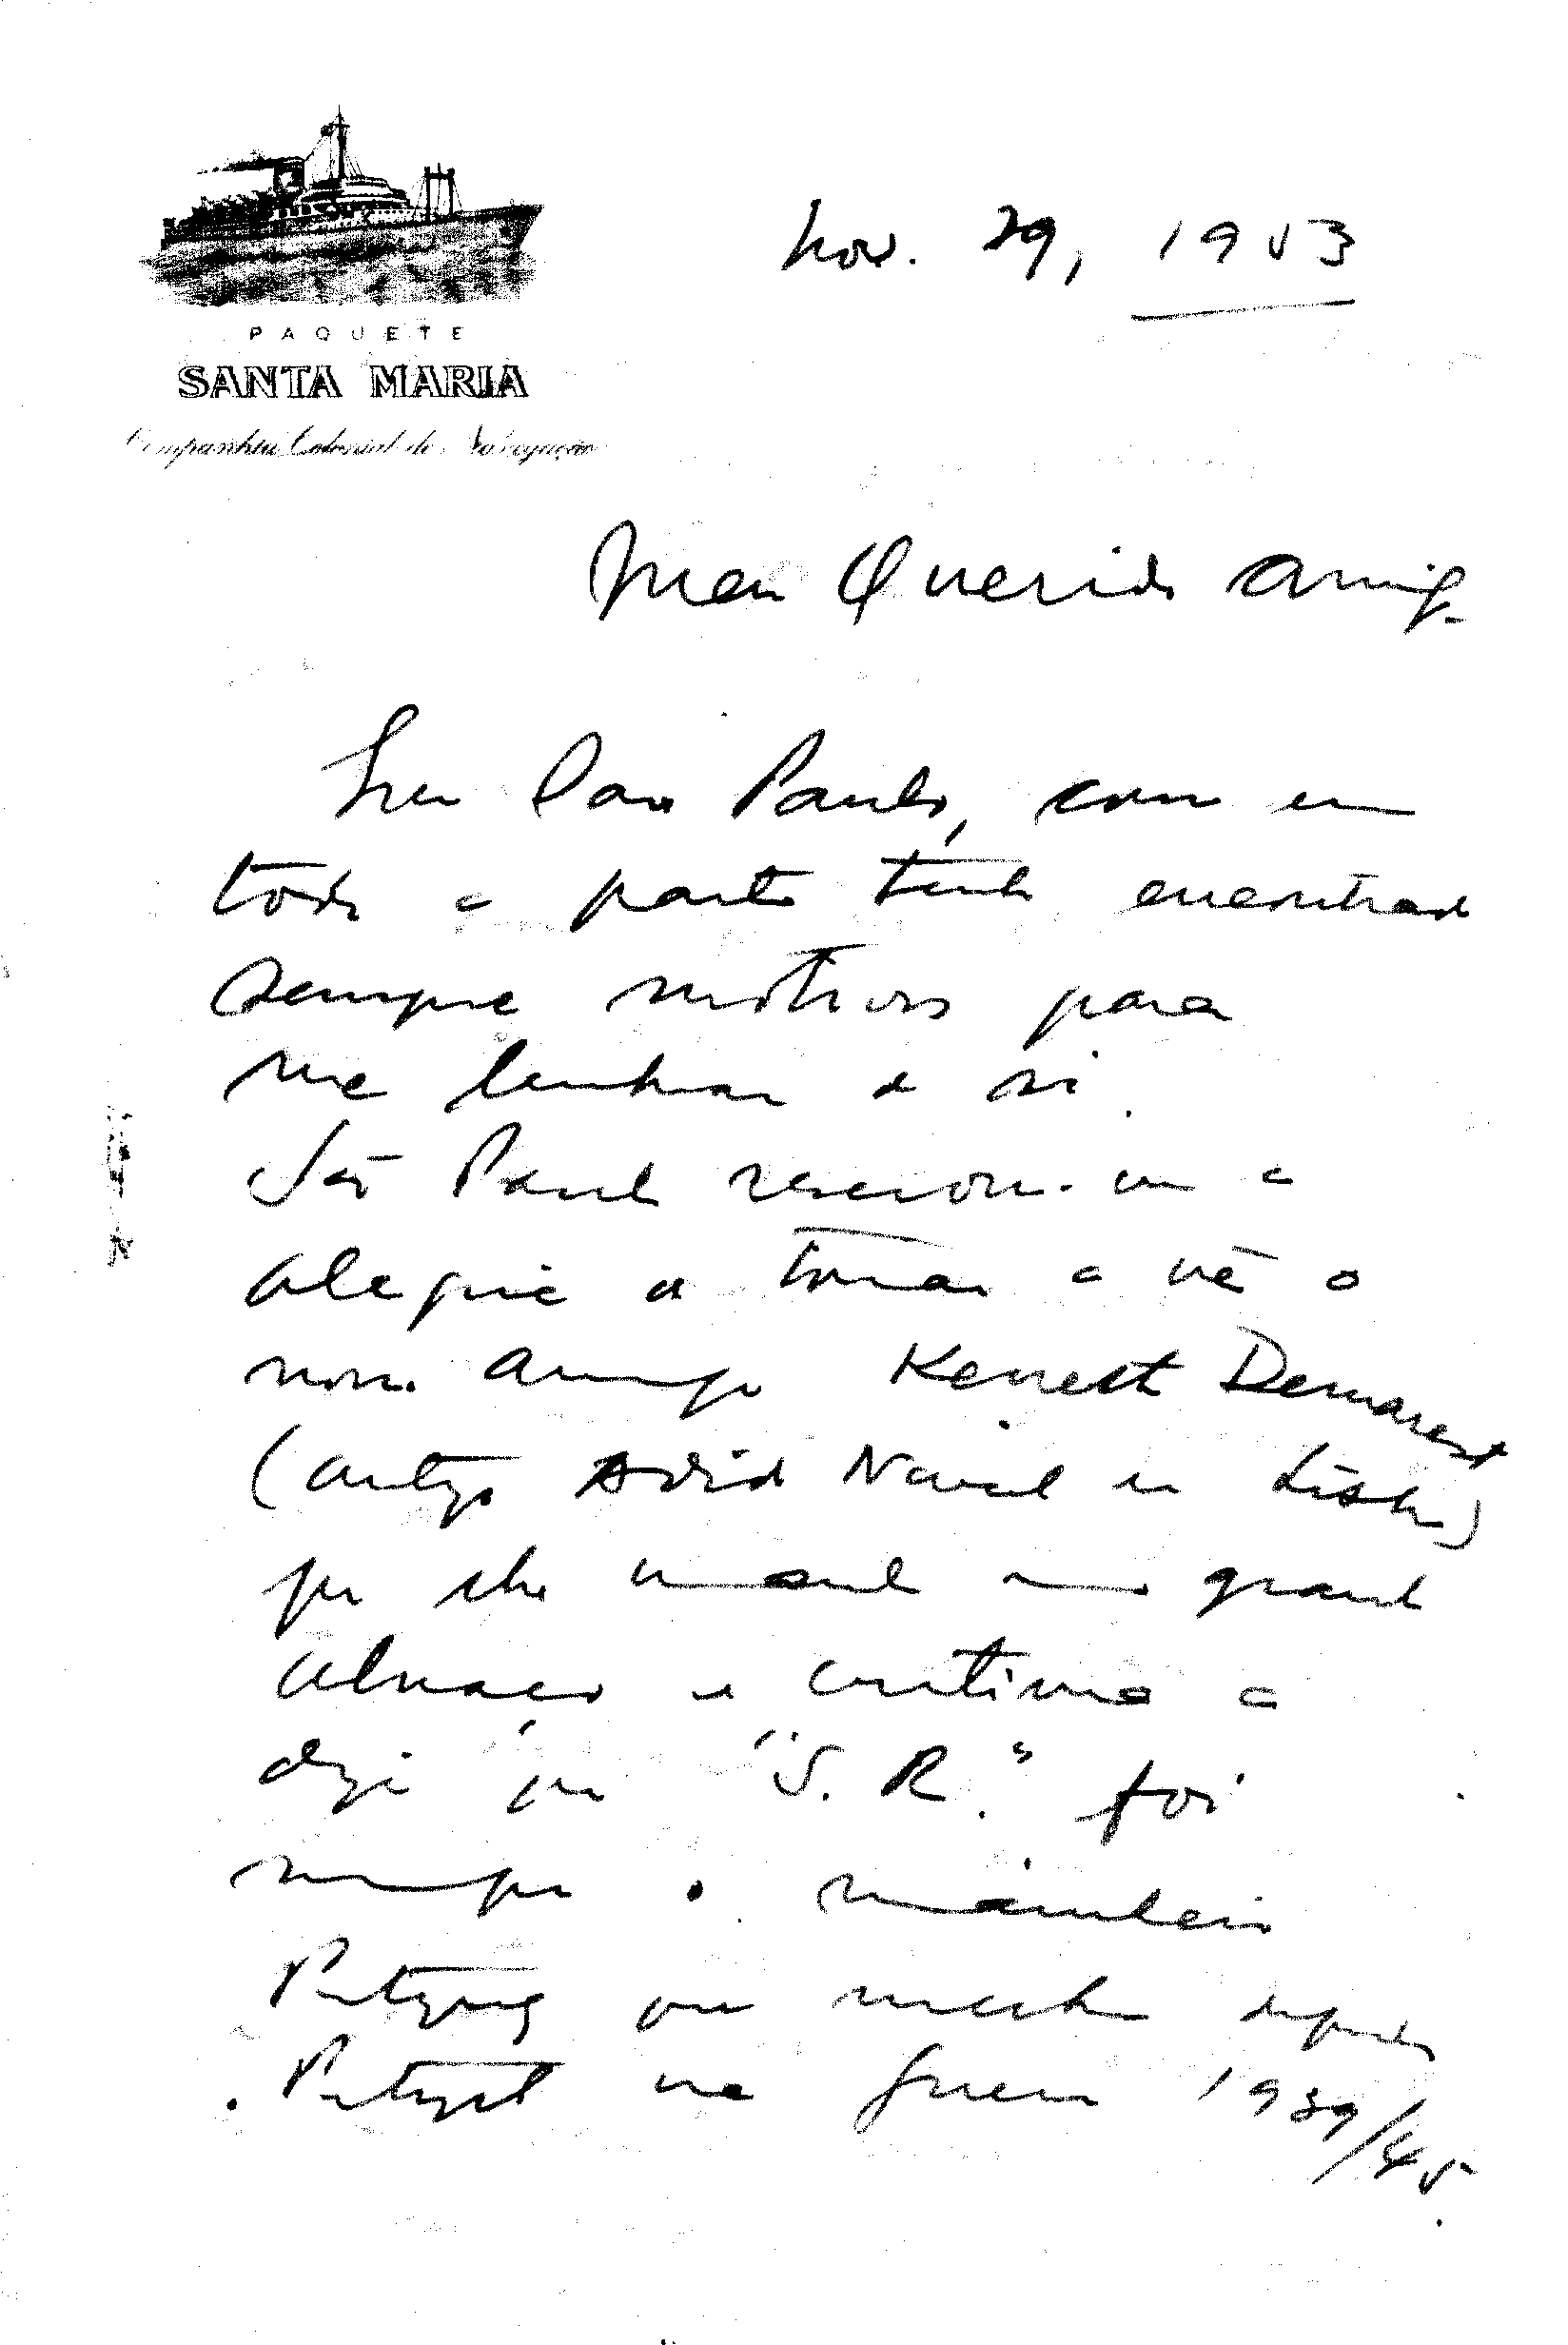 Nov. 29, 1953
PAQUETE
SANTA MARIA
Companhia Colonial de Navegação
Meu Querido Amigo
Em São Paulo, como em
toda a parte tenho encontrado
sempre motivos para
me lembrar de si.
São Paulo reservou-me a
alegria de tornar a vêr o
nosso amigo Kenest Demarest
(antigo Adido Naval em Lisboa)
que lhe manda um grande
abraço e continua a
dizer que "S. R." foi
Portugal na guerra 1939/45.